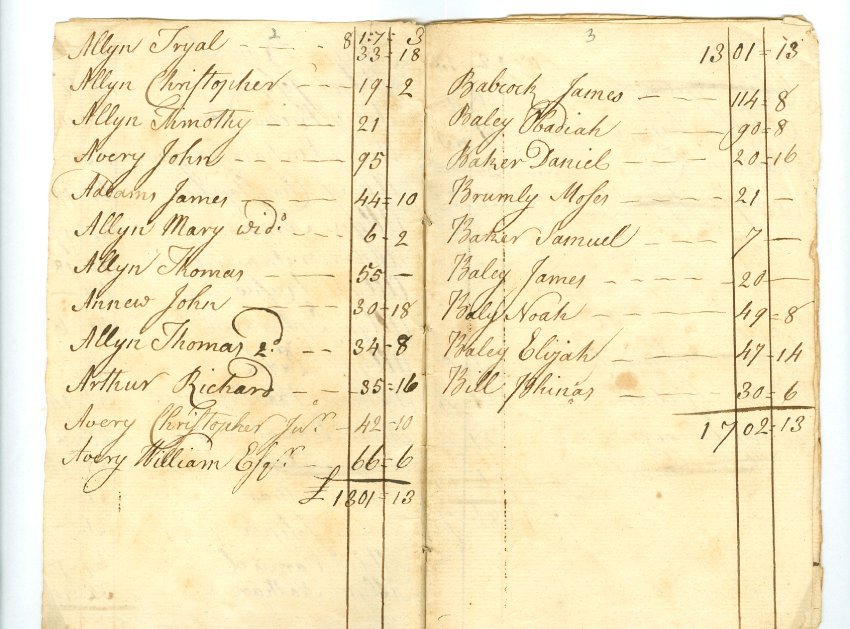 2
817=3
Allyn Tryal - - - 33=18
Allyn Christopher - - - 19-2
Allyn Timothy - - - 21
Avery John - - - 95
Addams James - - - 44=10
Allyn Mary wido - - 6-2
Allyn Thomas - - - 55 -
Annew John - - - 30=18
Allyn Thomas 2d - - 34=8
Arthur Richard - - 35=16
Avery Christopher Junr - 42-10
Avery William Esqr - 66=6
£1301=13
3
1301=13
Babcock James - - - 114=8
Baley Obadiah - - - 90=8
Baker Daniel - - - 20=16
Brumly Moses - - - 21 -
Baker Samuel - - - 7 -
Baley James - - - 20 -
Baly Noah - - - 49=8
Baley Elijah - - - 47-14
Bill Phinas - - - 30=6
1702=13